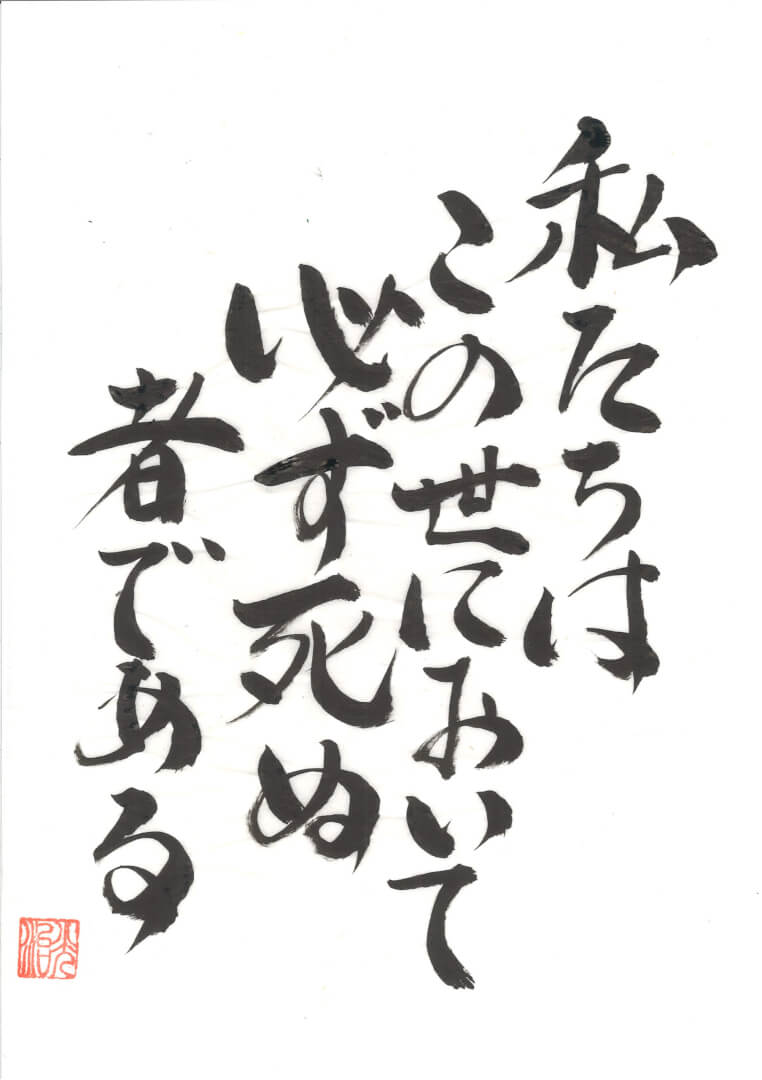 私たちは
この世において
必ず死ぬ
者である